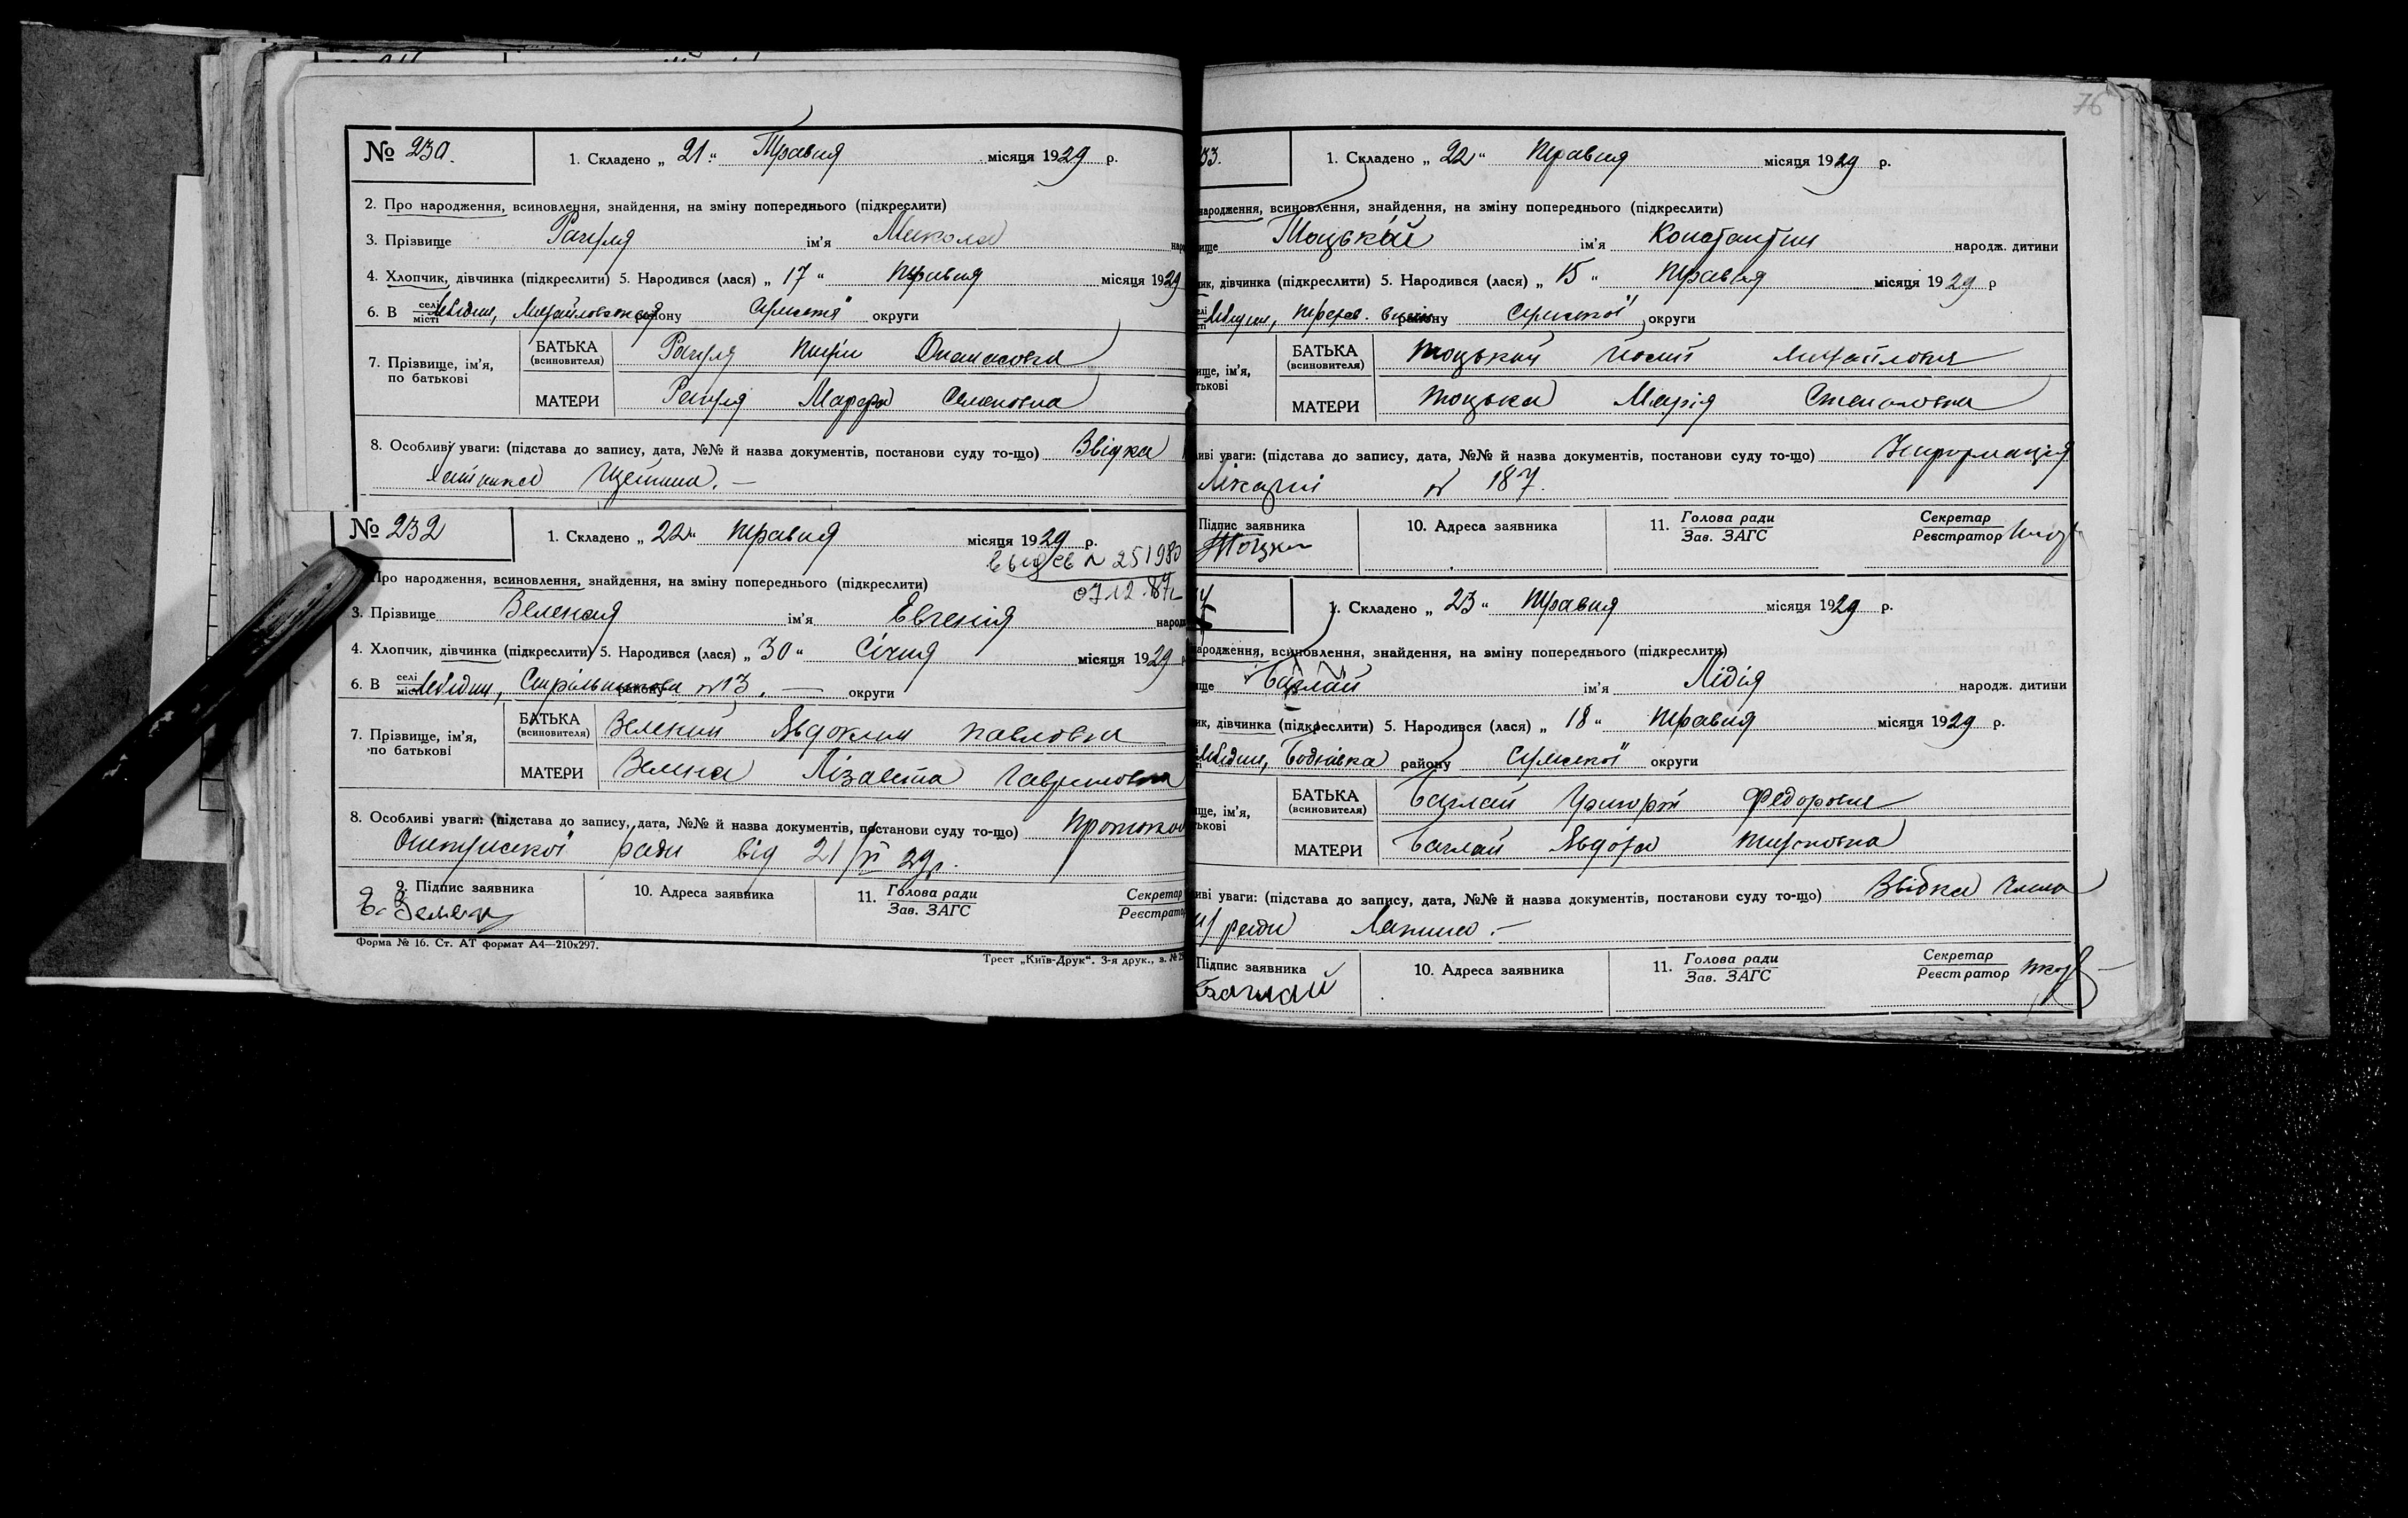 № 230.
1. Складено „ 21 “ Травня місяця 1929 р.
2. Про народження, всиновлення, знайдення, на зміну попереднього (підкреслити)
3. Прізвище ім’я Микола
4. Хлопчик, дівчинка (підкреслити) 5. Народився (лася) „ 17 “ травня місяця 1929
6. В селі місті Лебедин, району Сумської округи
7. Прізвище, ім’я, по батькові
БАТЬКА (всиновителя)
МАТЕРИ Семеновна
8. Особливі уваги: (підстава до запису, дата, №№ й назва документів, постанови суду то-що) Звідка
№ 232
1. Складено „ 22 “ травня місяця 1929 р.
№ 251980
07.12.87г
Про народження, всиновлення, знайдення, на зміну попереднього (підкреслити)
3. Прізвище Зеленая ім’я Евгенія
4. Хлопчик, дівчинка (підкреслити) 5. Народився (лася) „ 30 “ Січня місяця 1929
6. В селі місті Лебедин, району № 13. — округи
7. Прізвище, ім’я, по батькові
БАТЬКА (всиновителя) Зелений Явдоким Павлович
МАТЕРИ Зелена Лізавета Гавриловна
8. Особливі уваги: (підстава до запису, дата, №№ й назва документів, постанови суду то-що) Протокол
Опекунської ради від 21/ 29р.
9. Підпис заявника
10. Адреса заявника
11. Голова ради Зав. ЗАГС
Секретар
Реєстратор
Форма № 16. Ст. АТ формат А4—210х297.
Трест „Київ-Друк“. 3-я друк., з. №
76
33.
1. Складено „ 22 “ травня місяця 1929 р.
народження, всиновлення, знайдення, на зміну попереднього (підкреслити)
Тоцький ім’я Константин народж. дитини
дівчинка (підкреслити) 5. Народився (лася) „ 15 “ травня місяця 1929 р
Лебедин, району Сумської округи
БАТЬКА (всиновителя) Тоцький Йосип Михайлович
МАТЕРИ Тоцька Марія Степановна
уваги: (підстава до запису, дата, №№ й назва документів, постанови суду то-що) Информація
Лікарні № 187.
Підпис заявника
10. Адреса заявника
11. Голова ради Зав. ЗАГС
Секретар
Реєстратор
1. Складено „ 23 “ травня місяця 1929 р.
народження, всиновлення, знайдення, на зміну попереднього (підкреслити)
Баглай ім’я Лідія народж. дитини
дівчинка (підкреслити) 5. Народився (лася) „ 18 “ травня місяця 1929 р.
Лебедин, району Сумської округи
БАТЬКА (всиновителя) Баглай Григорій Федорович
МАТЕРИ Баглай Явдоха
уваги: (підстава до запису, дата, №№ й назва документів, постанови суду то-що) Звідка Члена
ради
Підпис заявника
Баглай
10. Адреса заявника
11. Голова ради Зав. ЗАГС
Секретар
Реєстратор